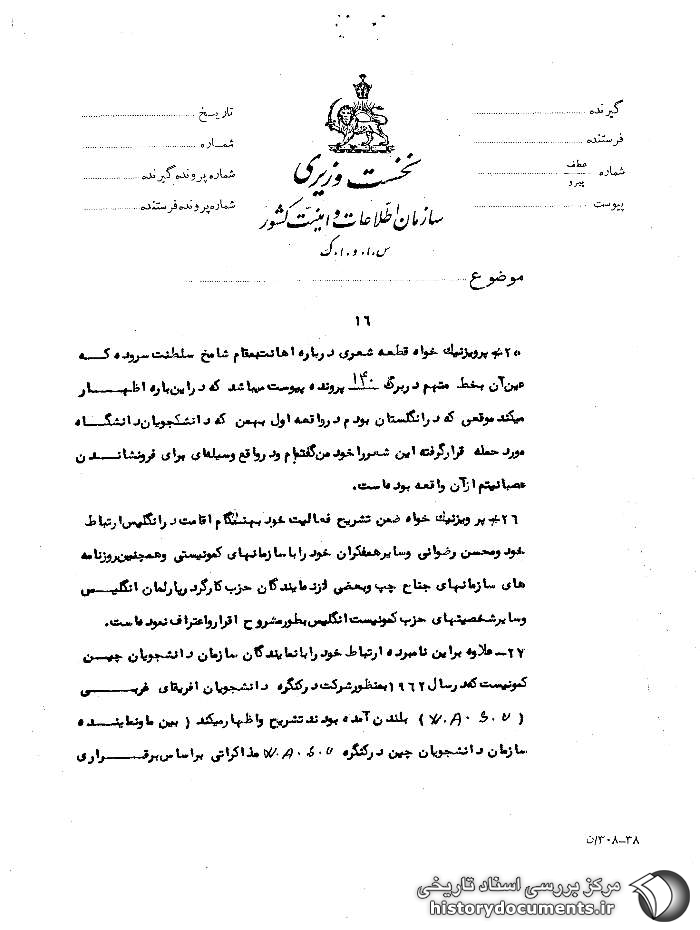 گیرنده
فرستنده
شماره عطف
پیرو
پیوست
تاریخ
شماره
شماره پرونده گیرنده
شماره پرونده فرستنده
نخست وزیری
سازمان اطلاعات و امنیت کشور
س.ا.و.ا.ک
موضوع
۱۶
۲۵- پرویز نیک خواه قطعه شعری درباره اهانت بمقام شامخ سلطنت سروده که
عین آن بخط متهم در برگ ۱۴۰ پرونده پیوست میباشد که در این باره اظهار
میکند موقعی که در انگلستان بودم در واقعه اول بهمن که دانشکجویان دانشگاه
مورد حمله قرار گرفته این شعر را خود من گفته‌ام و در واقع وسیله‌ای برای فرونشاندن
عصبانیتم از آن واقعه بوده است.
۲۶- پرویز نیک خواه ضمن تشریح فعالیت خود بهنگام اقامت در انگلیس ارتباط
خود و محسن رضوانی و سایر همفکران خود را با سازمانهای کمونیستی و همچنین روزنامه
های سازمانهای جناح چپ و بعضی از نمایندگان حزب کارگر در پارلمان انگلیس
و سایر شخصیتهای حزب کمونیست انگلیس بطور مشروح اقرار و اعتراف نموده است.
۲۷- علاوه بر این نامبرده ارتباط خود را با نمایندگان سازمان دانشجویان چین
کمونیست که در سال ۱۹۶۲ بمنظور شرکت در کنگره دانشجویان افریقای غربی
( W.A.S.U ) بلندن آمده بودند تشریح و اظهار میکند ( بین ما و نماینده
سازمان دانشجویان چین در کنگره W.A.S.U مذاکراتی بر اساس برقراری
۳۸-۳۰۸/ن
مرکز بررسی اسناد تاریخی
historydocuments.ir